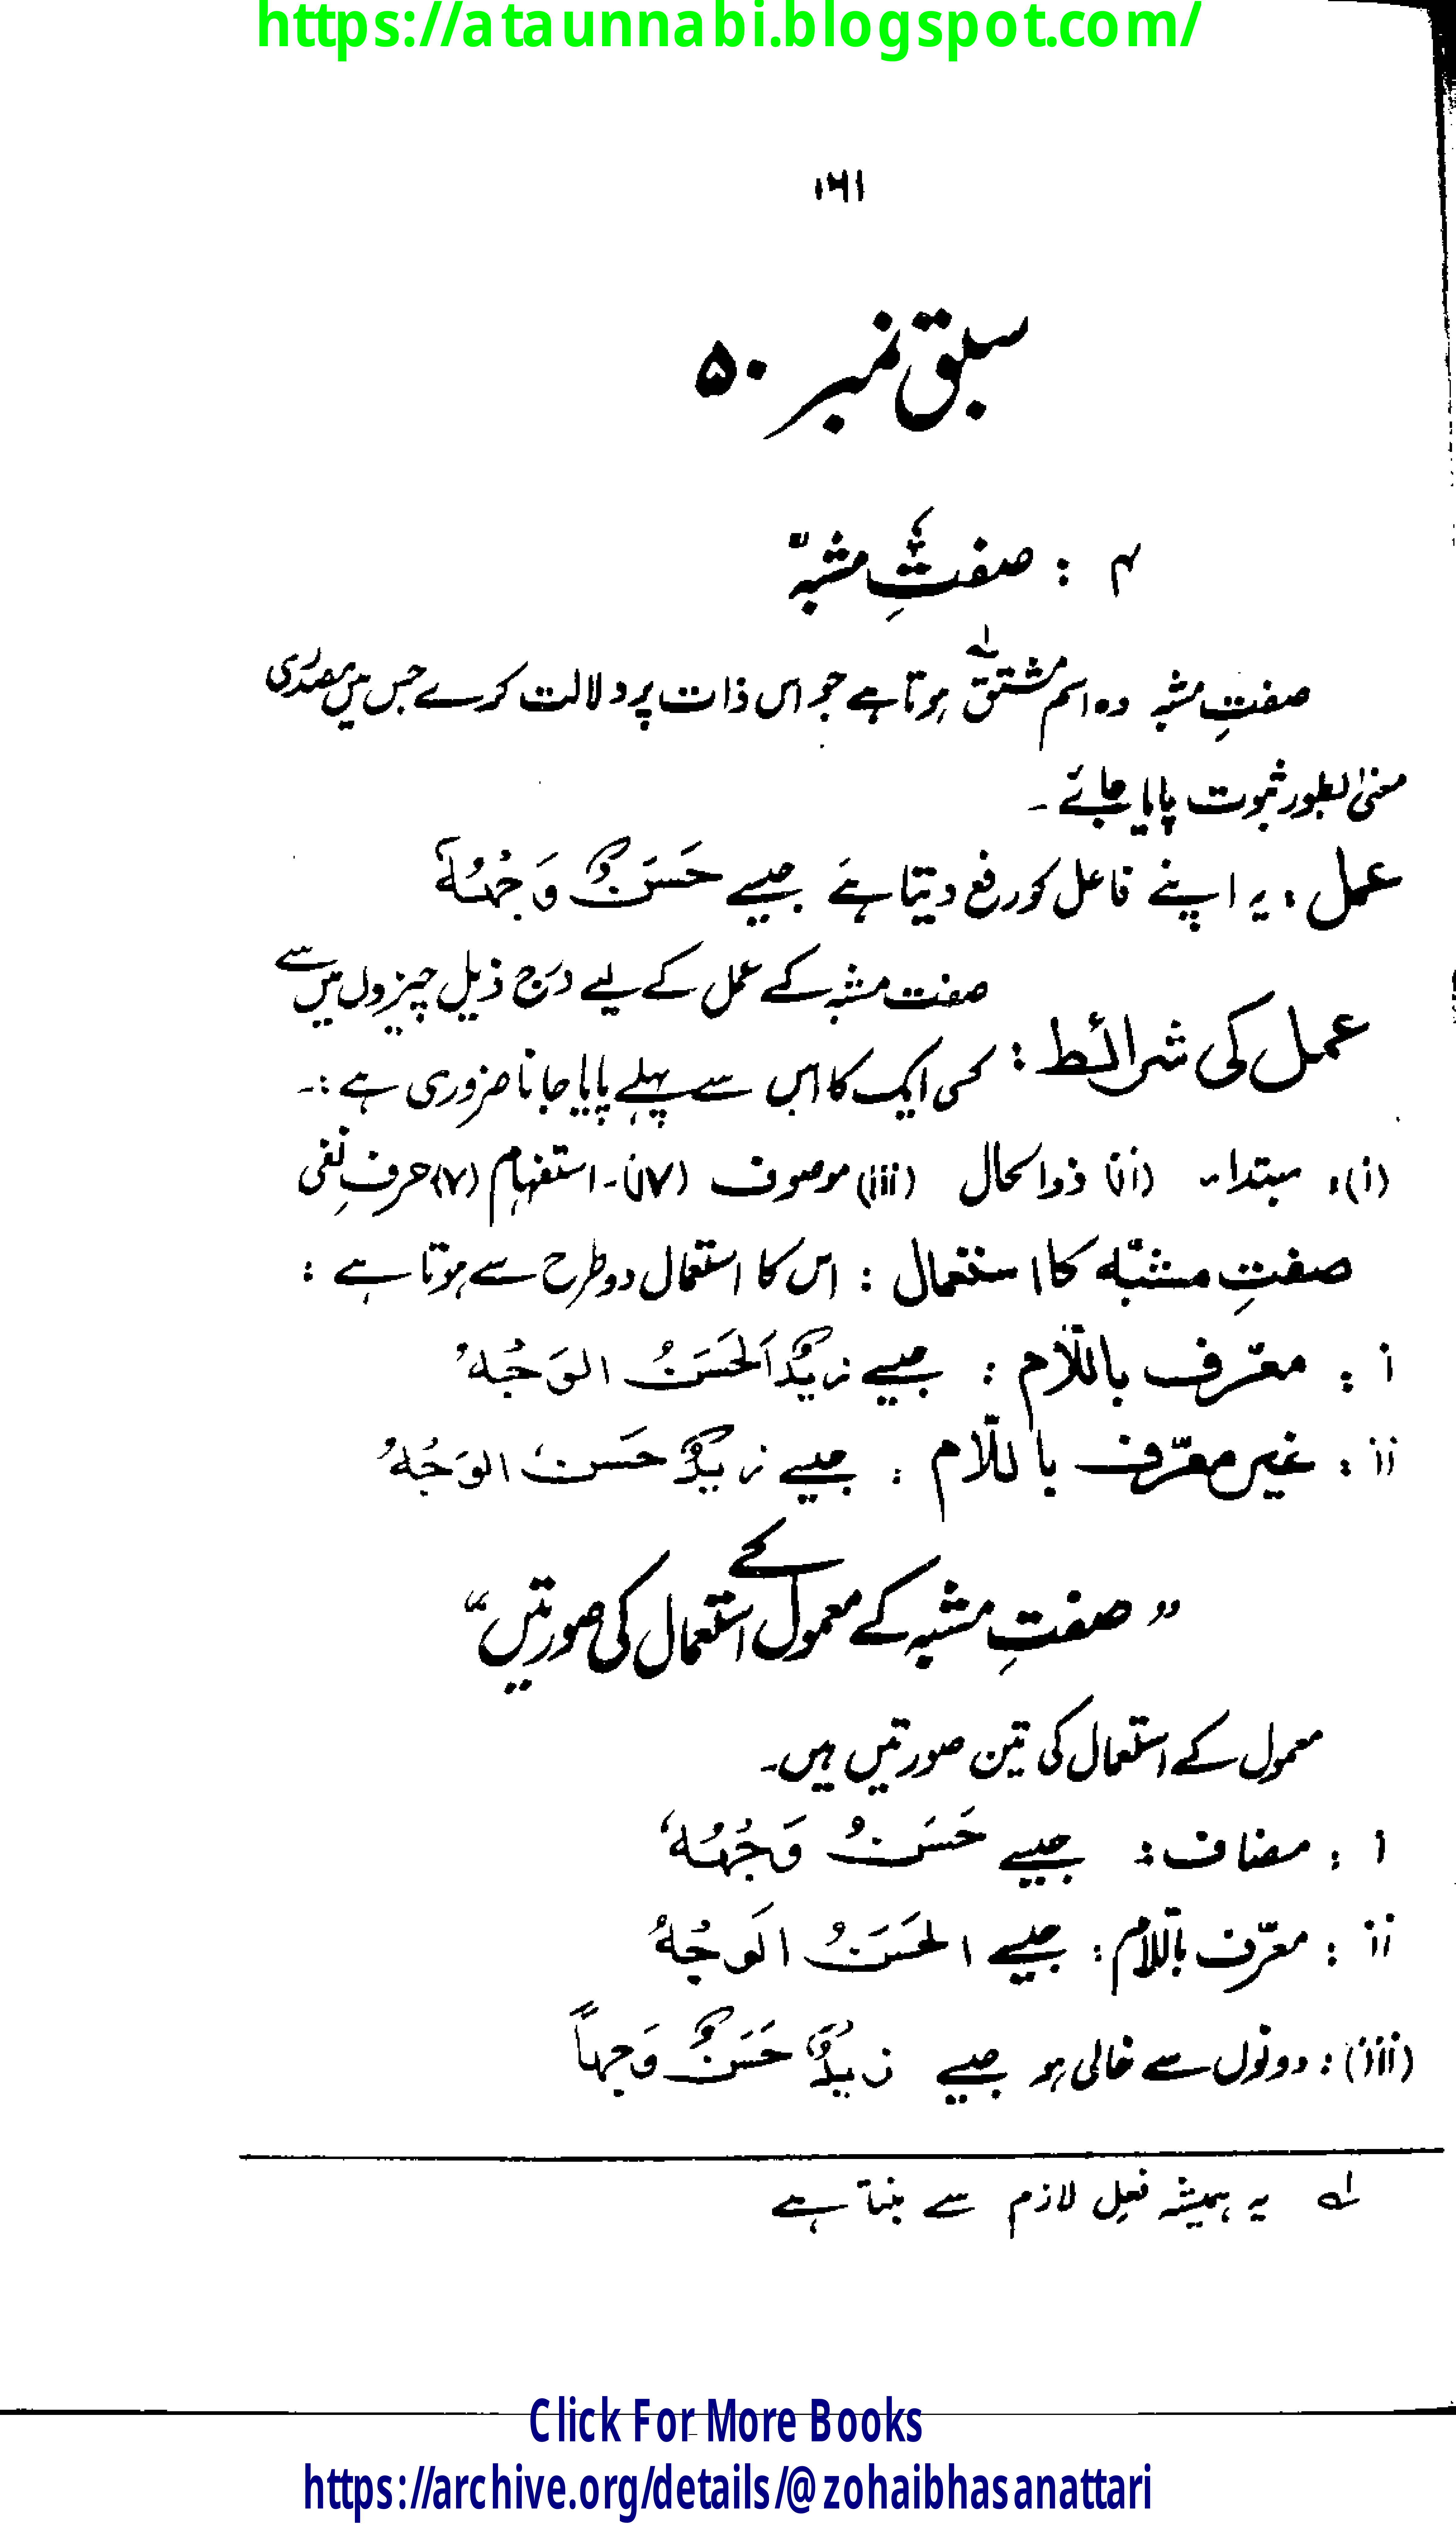 https://ataunnabi.blogspot.com/
۱۶۱
سبق نمبر ۵۰
۴ : صفتِ مشبہّ
صفتِ مشبہ وہ اسم مشتق لہ ہوتا ہے جو اس ذات پر دلالت کرے جس میں مصدری
معنیٰ بطور ثبوت پایا جائے ۔
عمل : یہ اپنے فاعل کو رفع دیتا ہے جیسے حَسَنٌ وَجْهُهٗ
عمل کی شرائط : صفت مشبہ کے عمل کے لیے درج ذیل چیزوں میں سے
کسی ایک کا اس سے پہلے پایا جانا ضروری ہے :۔
(i) : مبتدا ۔ (ii) ذوالحال (iii) موصوف (iv) ۔ استفہام (v) حرفِ نفی
صفتِ مشبّہ کا استعمال : اس کا استعمال دو طرح سے ہوتا ہے :
i : معرّف باللّام : جیسے زَیْدٌ اَلْحَسَنُ الوَجْهُ
ii : غیر معرّف باللّام : جیسے زیدٌ حَسَنُ الوَجْهُ
” صفتِ مشبہ کے معمول کے استعمال کی صورتیں “
معمول کے استعمال کی تین صورتیں ہیں ۔
i : مضاف : جیسے حَسَنُ وَجْهُهٗ
ii : معرّف باللّام : جیسے الحَسَنُ الوَجْهُ
(iii) : دونوں سے خالی ہو جیسے زیدٌ حَسَنٌ وَجهاً
لہ یہ ہمیشہ فعل لازم سے بنتا ہے
Click For More Books
https://archive.org/details/@zohaibhasanattari